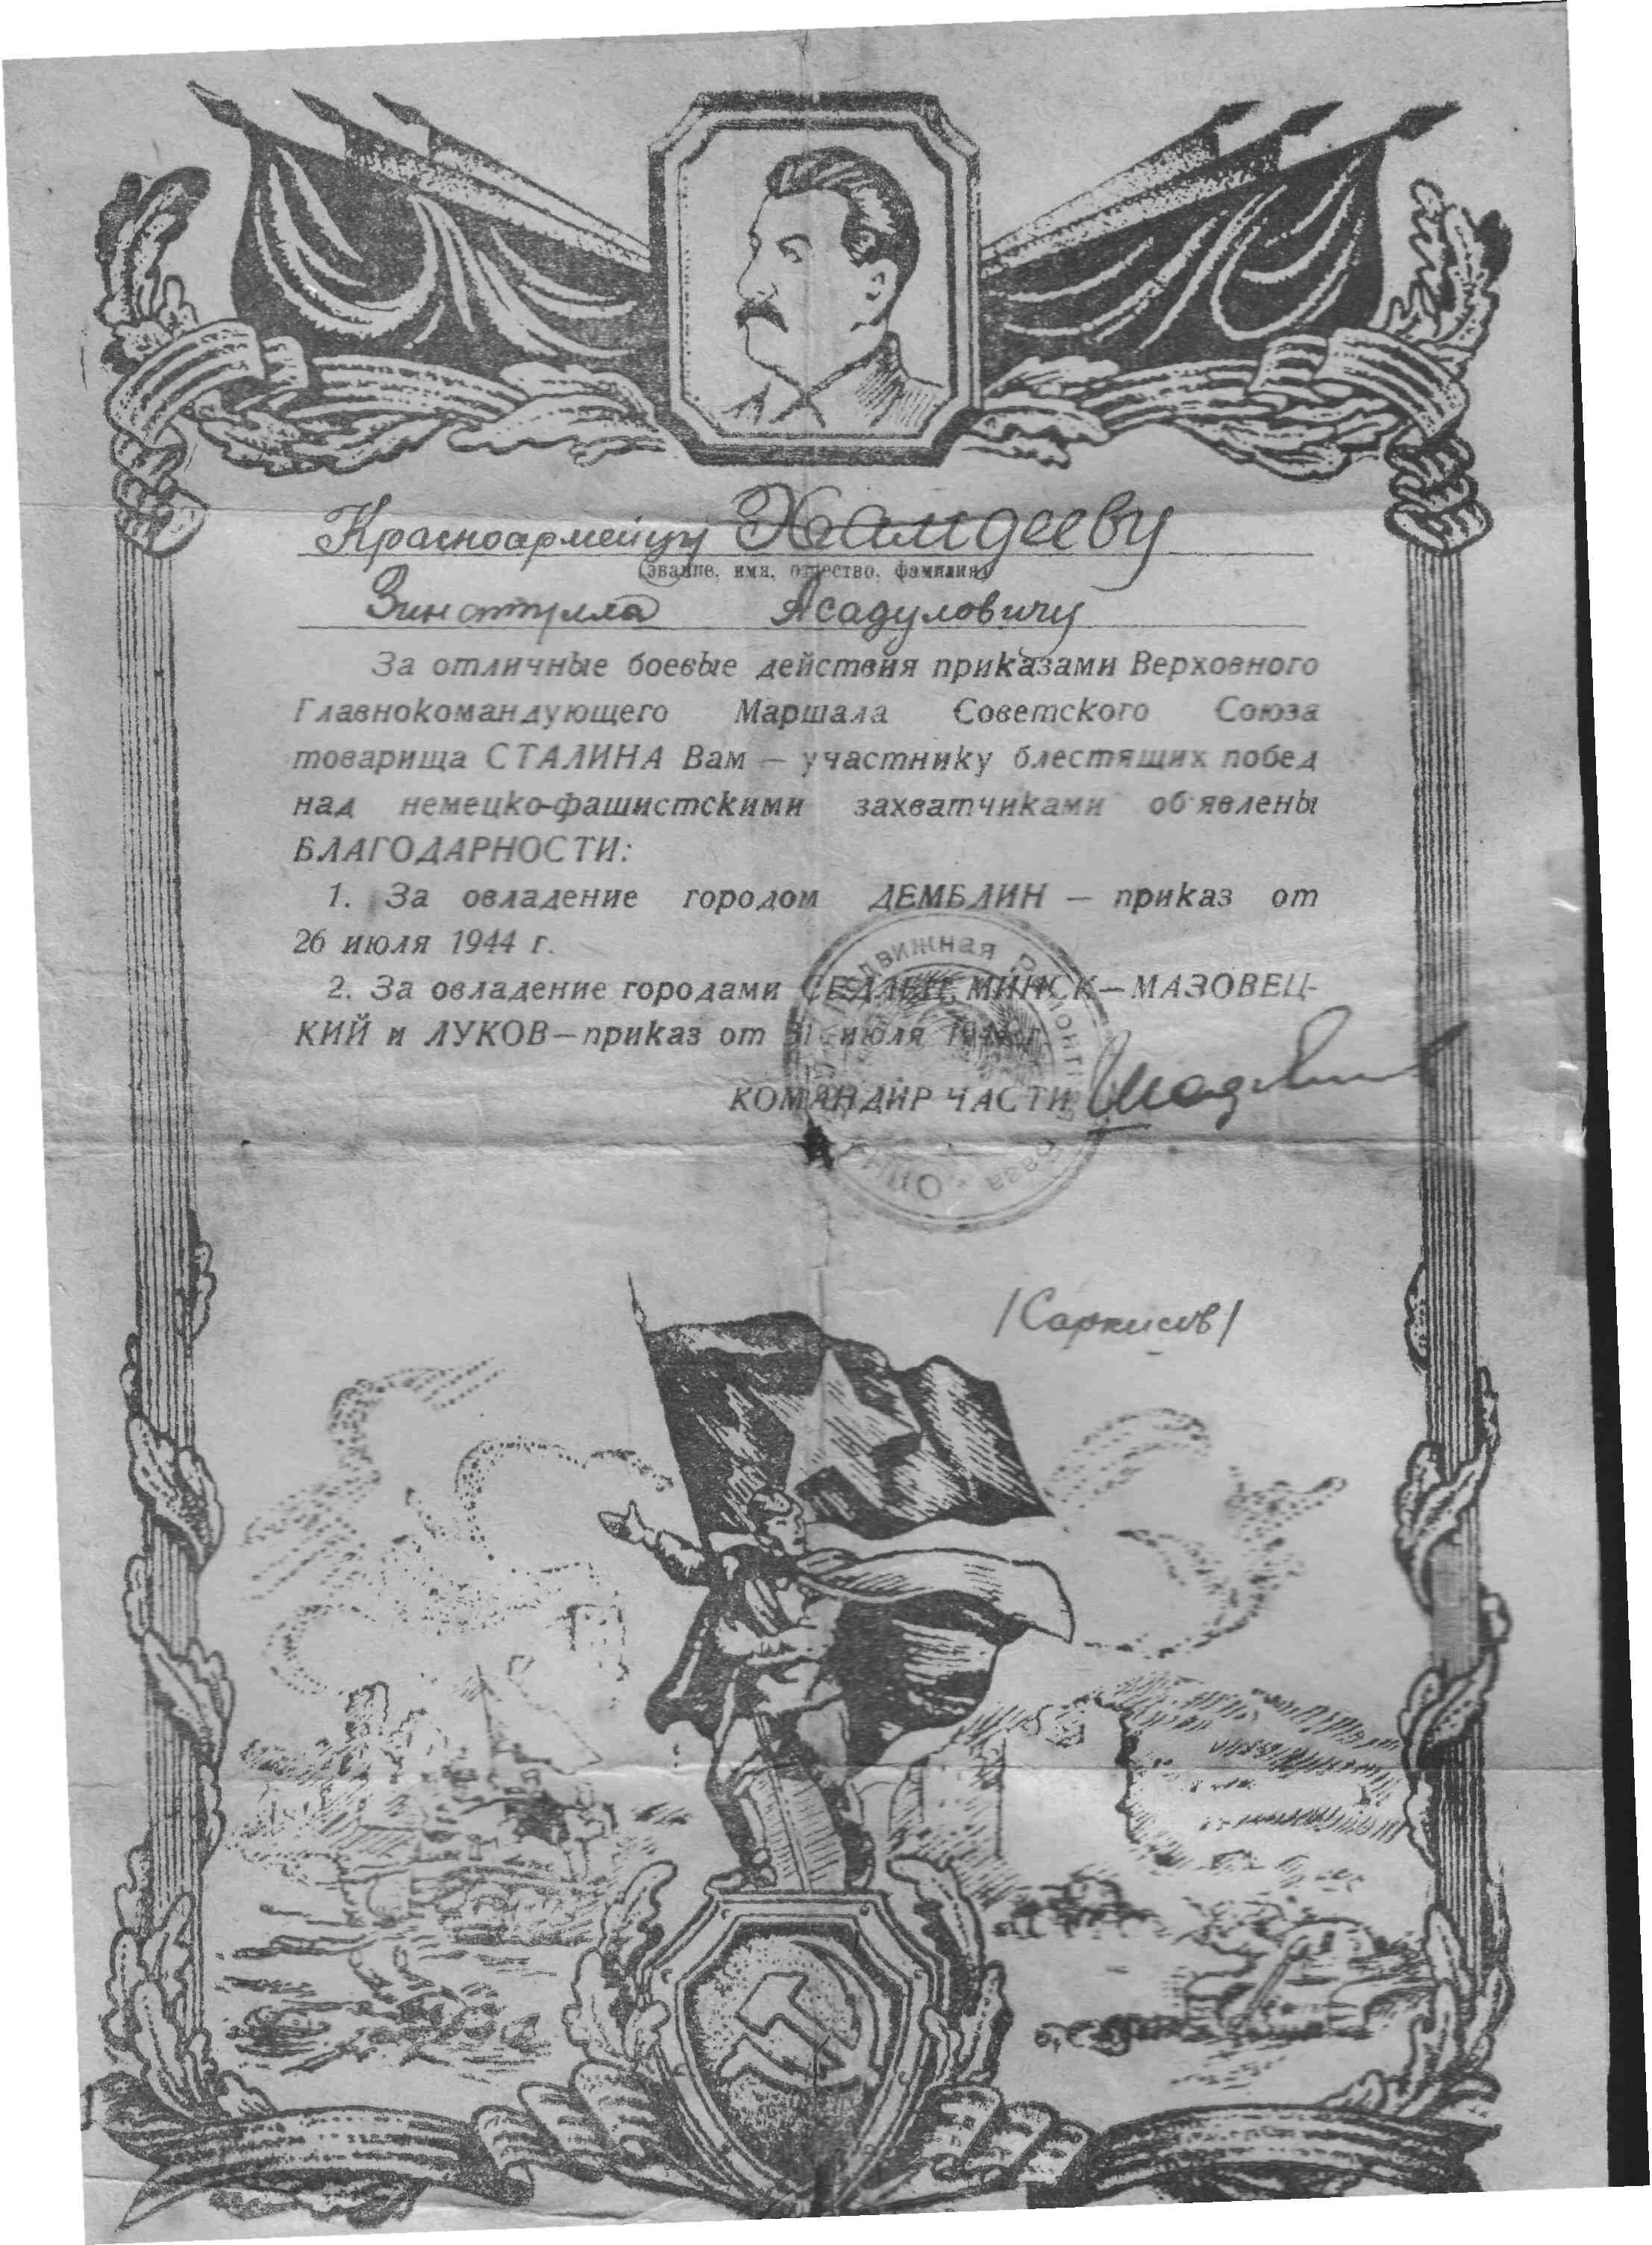 Красноармейцу Хамдееву
(звание, имя, отчество, фамилия)
Зинатулла Асадуловичу
За отличные боевые действия приказами Верховного
Главнокомандующего Маршала Советского Союза
товарища СТАЛИНА Вам — участнику блестящих побед
над немецко-фашистскими захватчиками об'явлены
БЛАГОДАРНОСТИ:
1. За овладение городом ДЕМБЛИН — приказ от
26 июля 1944 г.
2. За овладение городами СЕДЛЕЦ, МИНСК—МАЗОВЕЦ-
КИЙ и ЛУКОВ—приказ от 31 июля 1944 г.
КОМАНДИР ЧАСТИ
/Саркисов/